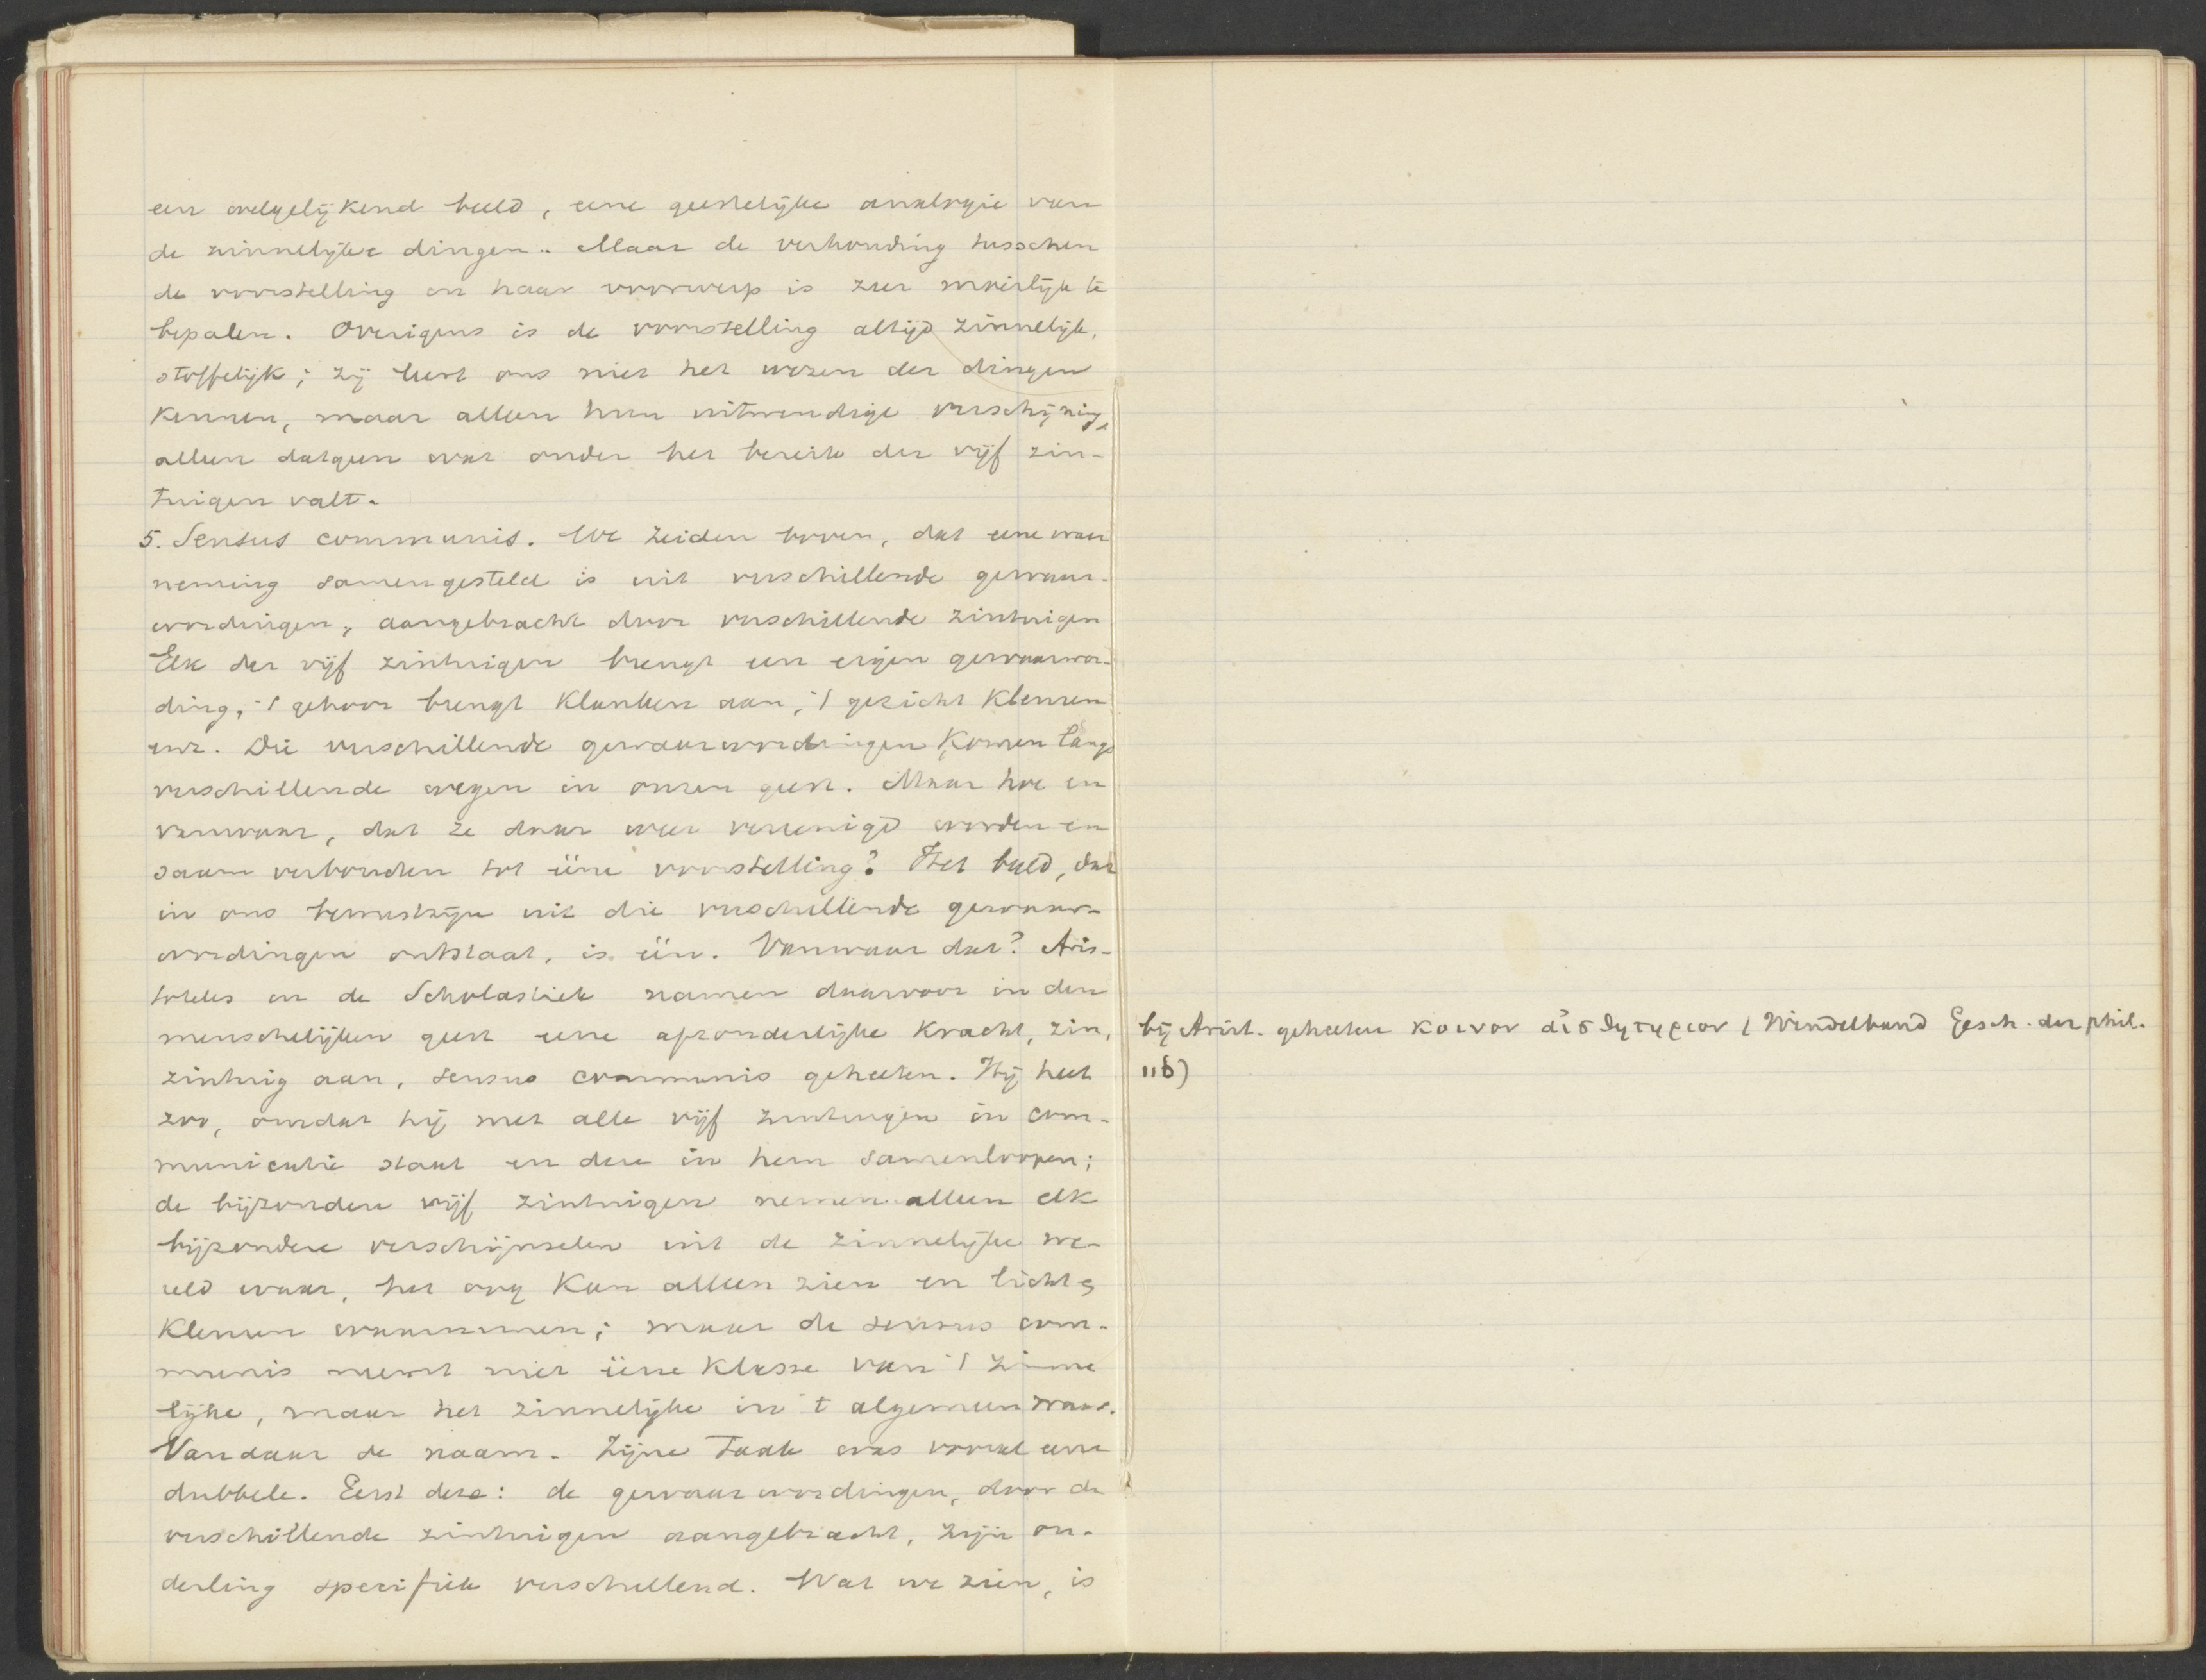 een welgelijkend beeld, eene geestelijke analogie van
de zinnelijke dingen.. Maar de verhouding tusschen
de voorstelling en haar voorwerp is zeer moeilijk te
bepalen. Overigens is de voorstelling altijd zinnelijk,
stoffelijk; zij leert ons niet het wezen der dingen
kennen, maar alleen hun uitwendige verschijning,
alleen datgeen wat onder het bereik der vijf zin-
tuigen valt.
5. Sensus communis. We zeiden boven, dat eene waar
neming samengesteld is uit verschillende gewaar-
wordingen, aangebracht door verschillende zintuigen
Elk der vijf zintuigen brengt een eigen gewaarwor-
ding, 't gehoor brengt klanken aan, 't gezicht kleuren
enz. Die verschillende gewaarwordingen komen langs
verschillende wegen in onzen geest. Maar hoe en
vanwaar, dat ze daar weer vereenigd worden en
saam verbonden tot ééne voorstelling? Het beeld, dat
in ons bewustzijn uit die verschillende gewaar-
wordingen ontstaat, is één. Vanwaar dat? Aris-
toteles en de Scholastiek namen daarvoor in den
menschelijken geest eene afzonderlijke kracht, zin,
zintuig aan, sensus communis geheeten. Hij heet
zoo, omdat hij met alle vijf zintuigen in com-
municatie staat en deze in hem samenloopen;
de bijzondere vijf zintuigen nemen alleen elk
bijzondere verschijnselen uit de zinnelijke we-
reld waar, het oog kan alleen zien en licht &
kleuren waarnemen; maar de sensus com-
munis neemt niet ééne klasse van 't zinne
lijke, maar het zinnelijke in 't algemeen waar.
Vandaar de naam. Zijne taak was vooral eene
dubbele. Eerst deze: de gewaarwordingen, door de
verschillende zintuigen aangebracht, zijn on-
derling specifiek verschillend. Wat we zien, is
bij Arist. geheeten κοινον αἰσθητηριον (Windelband Gesch. der phil.
116)